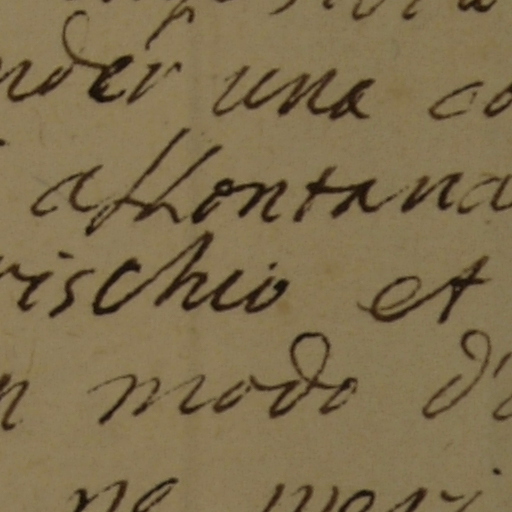 nder una co
allontana
rischio et
n modo d'
ne